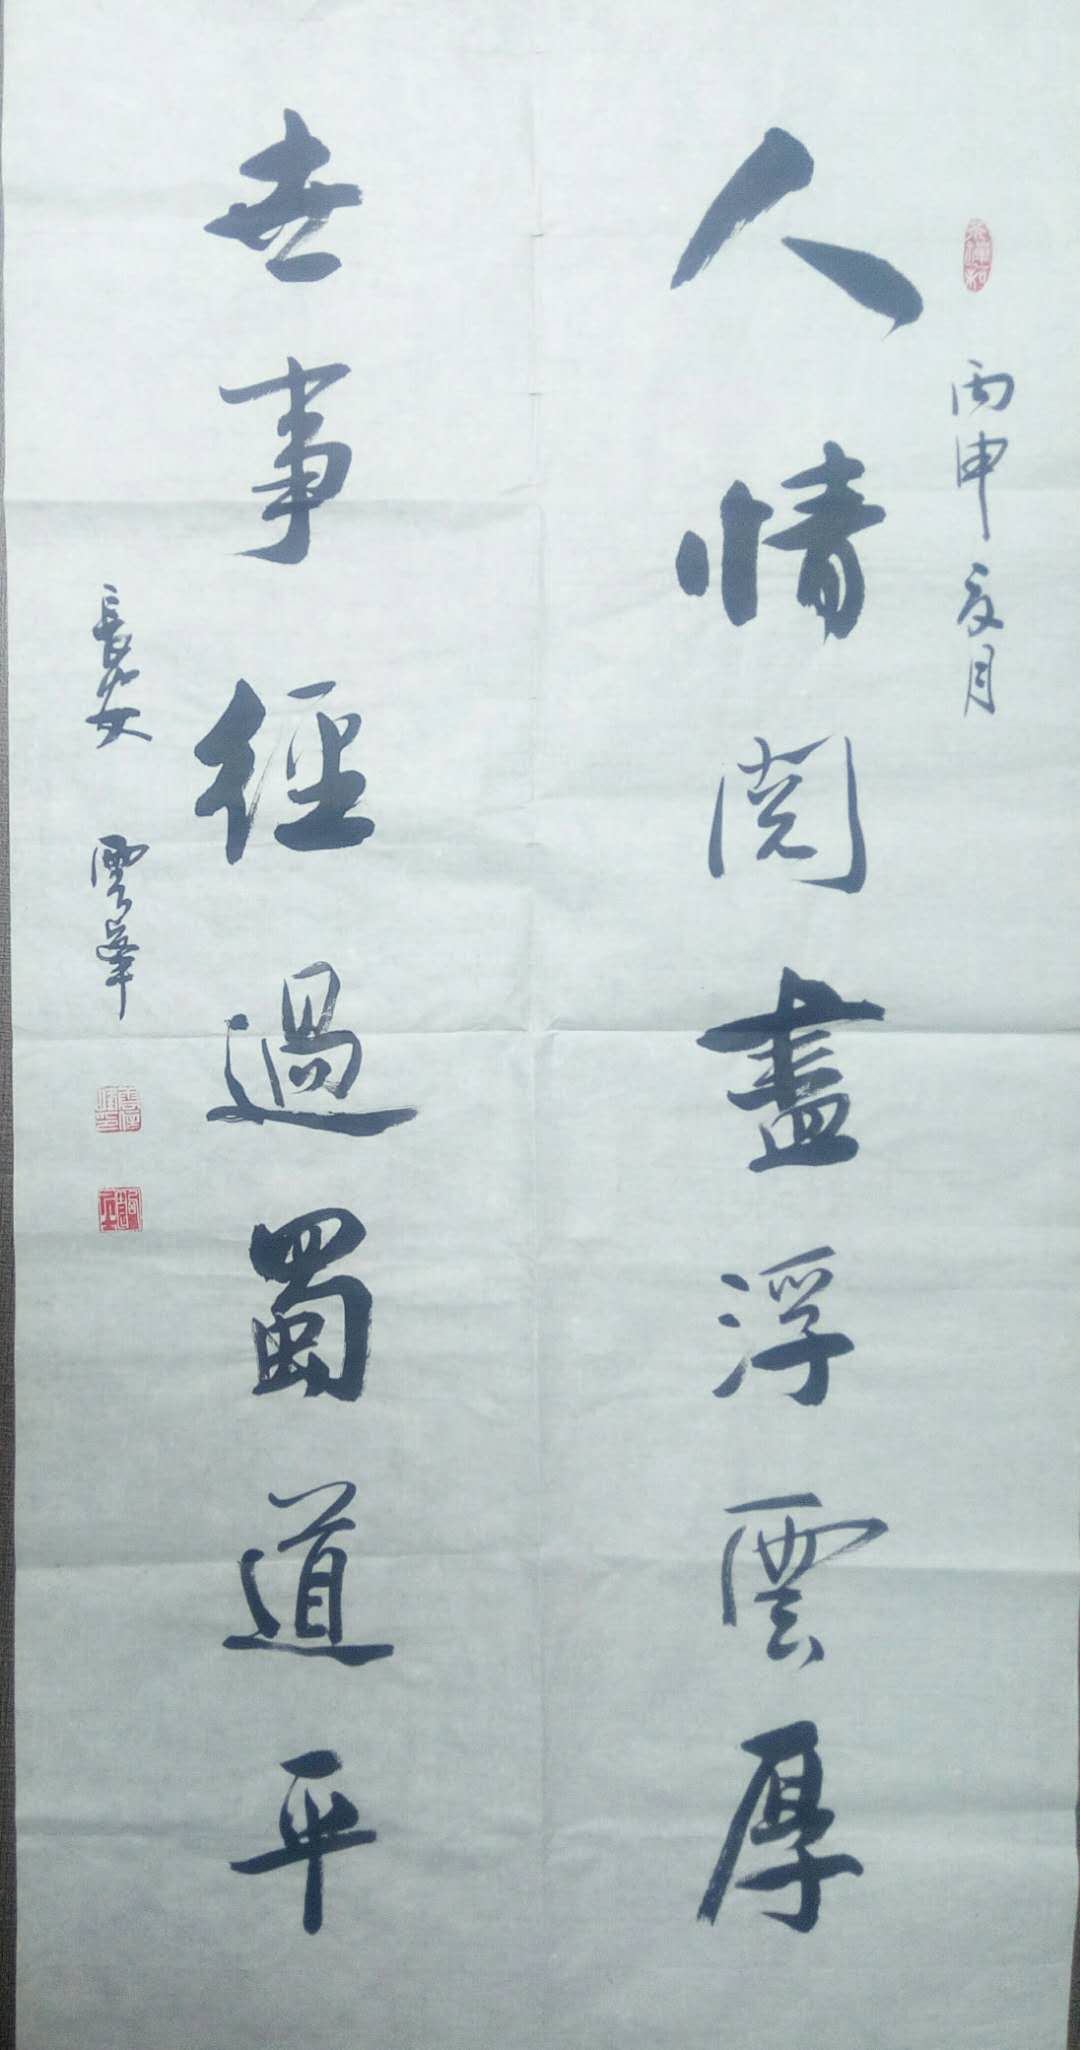 丙申夏月
人情閱盡浮雲厚
世事經過蜀道平
長安 雲峯